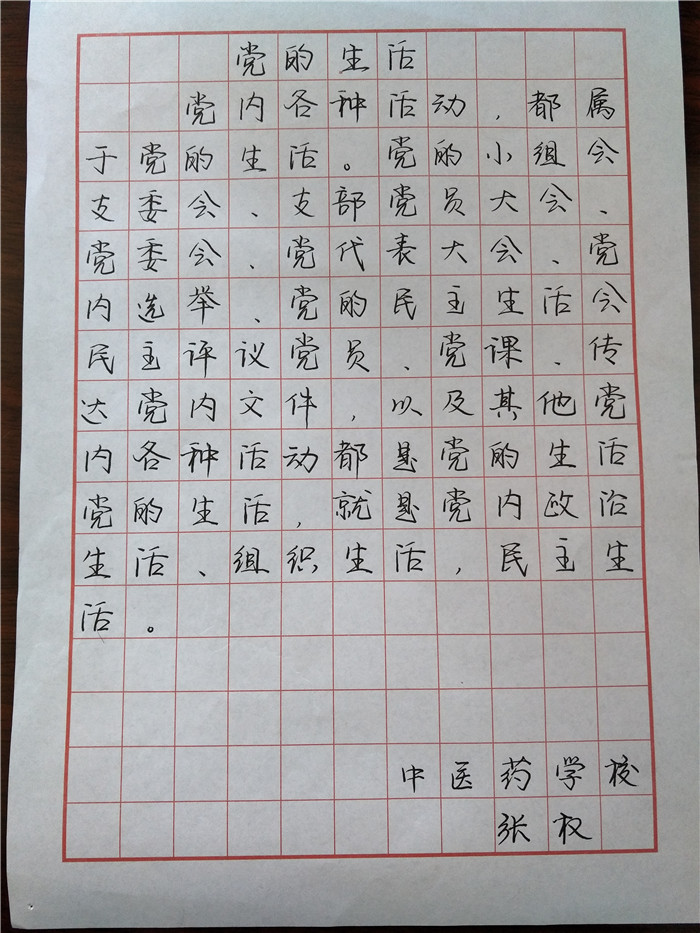 党的生活
党内各种活动，都属
于党的生活。党的小组会
支委会、支部党员大会、
党委会、党代表大会、党
内选举、党的民主生活会
民主评议党员、党课、传
达党内文件，以及其他党
内各种活动都是党的生活
党的生活，就是党内政治
生活、组织生活，民主生
活。
中医药学校
张权